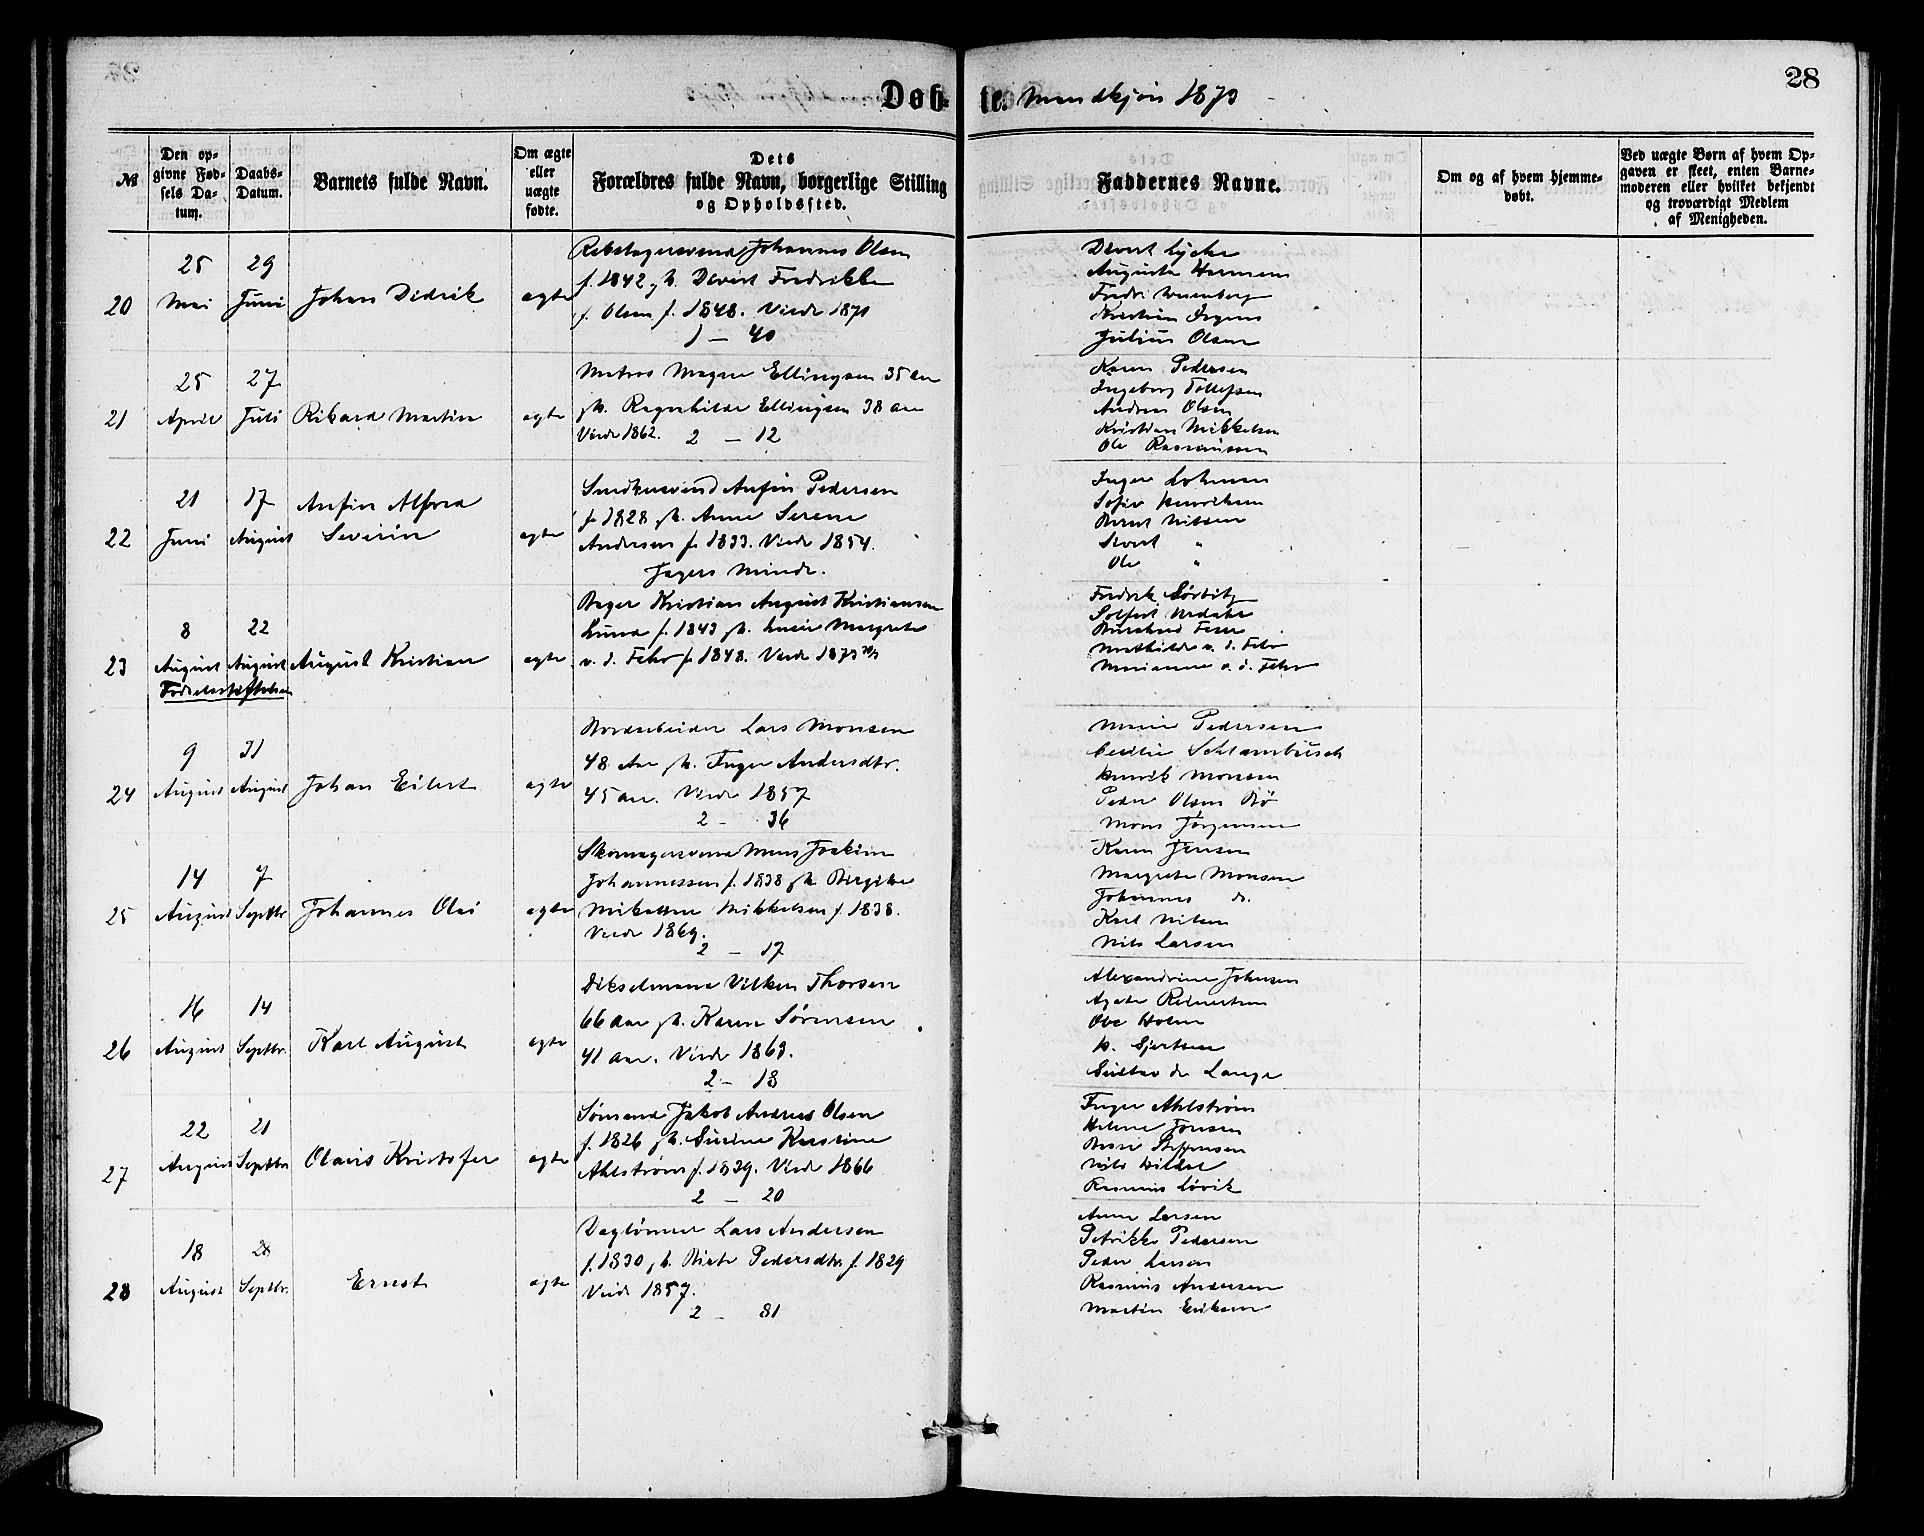 28
Døb-te. Mandkjøn 1873
№
Den op-
givne Fød-
sels Da-
tum.
Daabs-
Datum.
Barnets fulde Navn.
Om ægte
eller
uægte
fødte.
Dets
Forældres fulde Navn, borgerlige Stilling
og Opholdssted.
Faddernes Navne.
Om og af hvem hjemme-
døbt.
Ved uægte Børn af hvem Op-
gaven er skeet, enten Barne-
moderen eller hvilket bekjendt
og troværdigt Medlem
af Menigheden.
20
25
Mai
29
Juni
Johan Didrik
ægte
Johannes Olsen
f. 1842, h. Divert Fredrikke
f. Olsen f. 1848. Viede
1 — 40
Divert Lycke
Augusta Hermansen
Julius Olsen
21
25
April
27
Juli
Rikard Martin
ægte
Matros Magne Ellingsen 35 Aar
h. Ragnhilde Ellingsen 38 Aar
Viede 1862. 2 — 12
Karen Pedersen
Ingeborg Tollefsen
Andreas Olsen
Kristian Mikkelsen
Ole Rasmussen
22
21
Juni
17
August
Anfin Alfred
Severin
ægte
Snedkersvend Anfin Pedersen
f. 1828, h. Anne Serene
Andersen f. 1833. Viede 1854.
Jægers Minde.
Inger Lohman
Sofie Henriksen
Bernt Nilsen
Sivert "
Ole "
23
8
August
22
August
Fødselsstiftelsen
August Kristian
ægte
Bager Kristian August Kristiansen
Lund f. 1843, h. Lucie Margrete
v. d. Fehr f. 1848. Viede
Fredrik
Mathilde v. d. Fehr
Marianne v. d. Fehr
24
9
August
31
August
Johan Eilert
ægte
Jordarbeider Lars Monsen
48 Aar, h. Inger Andersdtr.
45 Aar. Viede 1857
2 — 36
Marie Pedersen
Cecilie Schlambusch
Henrik Monsen
Peder Olsen Bø
Mons Jørgensen
25
14
August
7
Septbr
Johannes Olai
ægte
Skomagersvend Mons Joakim
Johannessen f. 1838, h. Birgitte
Mikeline Mikkelsen f. 1838.
Viede 1869.
2 — 17
Karen Jensen
Margrete Monsen
Johannes do.
Karl Nilsen
Nils Larsen
26
16
August
14
Septbr.
Karl August
ægte
Dikselmand Vilken Thorsen
66 Aar, h. Karen Sørensen
41 Aar. Viede 1863.
2 — 18
Alexandrine Johnsen
Agate Reinertsen
Ove Holm
Gustav de Lange
27
22
August
21
Septbr
Olaus Kristofer
ægte
Sømand Jakob Andreas Olsen
f. 1826, h. Sirine Kirstine
Ahlstrøm f. 1839. Viede 1866
2 — 20
Inger Ahlstrøm
Helene Jonsen
Steffensen
Nils
Rasmus Løvik
28
18
August
28
Septbr.
Ernst
ægte
Daglønner Lars Andersen
f. 1830, h. Birte Pedersdtr f. 1829
Viede 1857.
2 — 81
Anne Larsen
Petrikke Pedersen
Peder Larsen
Rasmus Andersen
Martin Eriksen